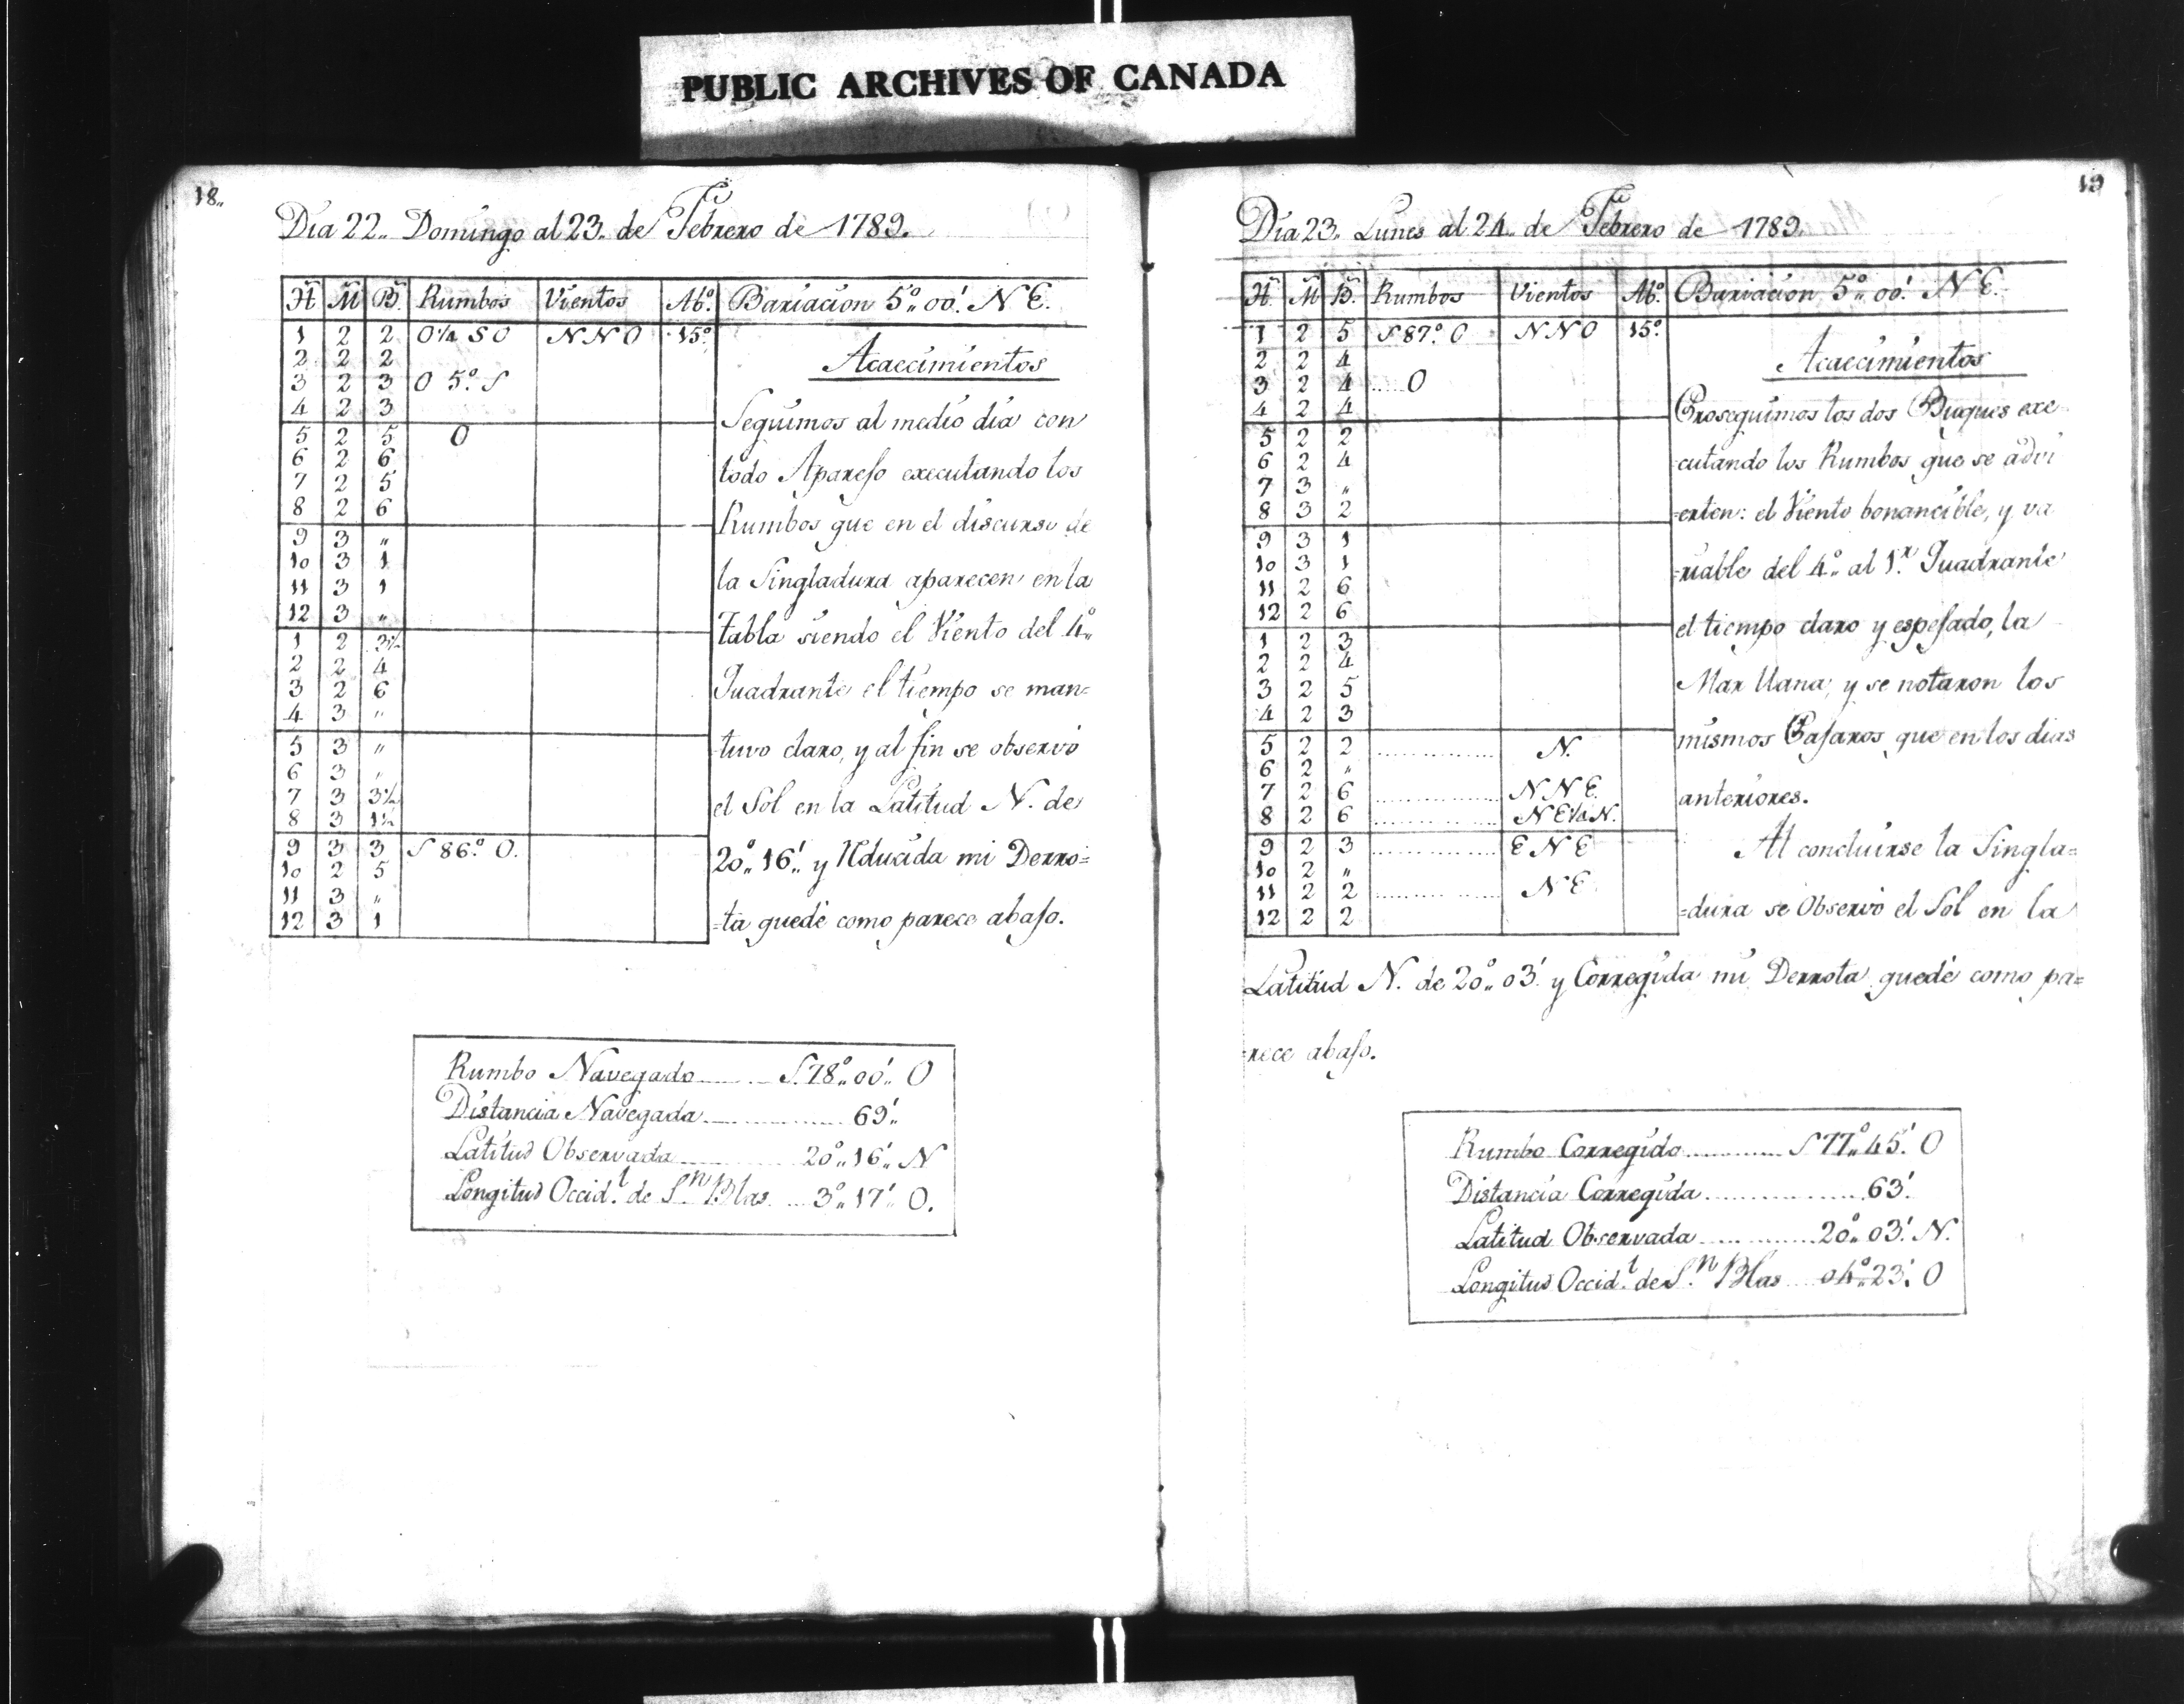 PUBLIC ARCHIVES OF CANADA
18..
Dia 22.. Domingo al 23.. de Febrero de 1789.
H M B. Rumbos Vientos Abº. Bariacion 5º.. 00'. N E.
1 2 2 O¼ S O N N O 15º.
2 2 2
3 2 3 O 5º. S
4 2 3
5 2 5 O
6 2 6
7 2 5
8 2 6
9 3 ..
10 3 1
11 3 1
12 3 ..
1 2 3½
2 2 4
3 2 6
4 3 ..
5 3 ..
6 3 ..
7 3 3½
8 3 1½
9 3 3 S 86º. O.
10 2 5
11 3 ..
12 3 1
Acaecimientos
Seguimos al medio dia con
todo Aparejo executando los
Rumbos que en el discurso de
la Singladura aparecen en la
Tabla siendo el Viento del 4º..
Quadrante el tiempo se man=
=tuvo claro, y al fin se observó
el Sol en la Latitud N. de
20º.. 16'.. y Rducida mi Derro=
=ta quedé como parece abajo.
Rumbo Navegado S. 78º.. 00'.. O
Distancia Navegada 69'..
Latitud Observada 20º.. 16'.. N
Longitud Occidl. de Sn. Blas 3º.. 17'.. O.
19
Dia 23.. Lunes al 24.. de Febrero de 1789.
H. M B. Rumbos Vientos Abº. Bariacion 5º.. 00'. N E.
1 2 5 S 87º. O N N O 15º.
2 2 4
3 2 4 ..... O
4 2 4
5 2 2
6 2 4
7 3 ..
8 3 2
9 3 1
10 3 1
11 2 6
12 2 6
1 2 3
2 2 4
3 2 5
4 2 3
5 2 2 ............... N.
6 2 ..
7 2 6 ............... N N E.
8 2 6 ............... N E¼ N.
9 2 3 ............... E N E
10 2 ..
11 2 2 ............... N E
12 2 2
Acaecimientos
Proseguimos los dos Buques exe
=cutando los Rumbos que se advi
=erten: el Viento bonancible, y va
=riable del 4º.. al 1r. Quadrante
el tiempo claro y espejado, la
Mar llana, y se notaron los
mismos Pajaros que en los dias
anteriores.
Al concluirse la Singla=
=dura se Observó el Sol en la
Latitud N. de 20º.. 03'. y Corregida mi Derrota quedé como pa=
=rece abajo.
Rumbo Corregido S 77º.. 45'. O
Distancia Corregida 63'.
Latitud Observada 20º.. 03'. N.
Longitud Occidl. de Sn. Blas 04º.. 23'. O